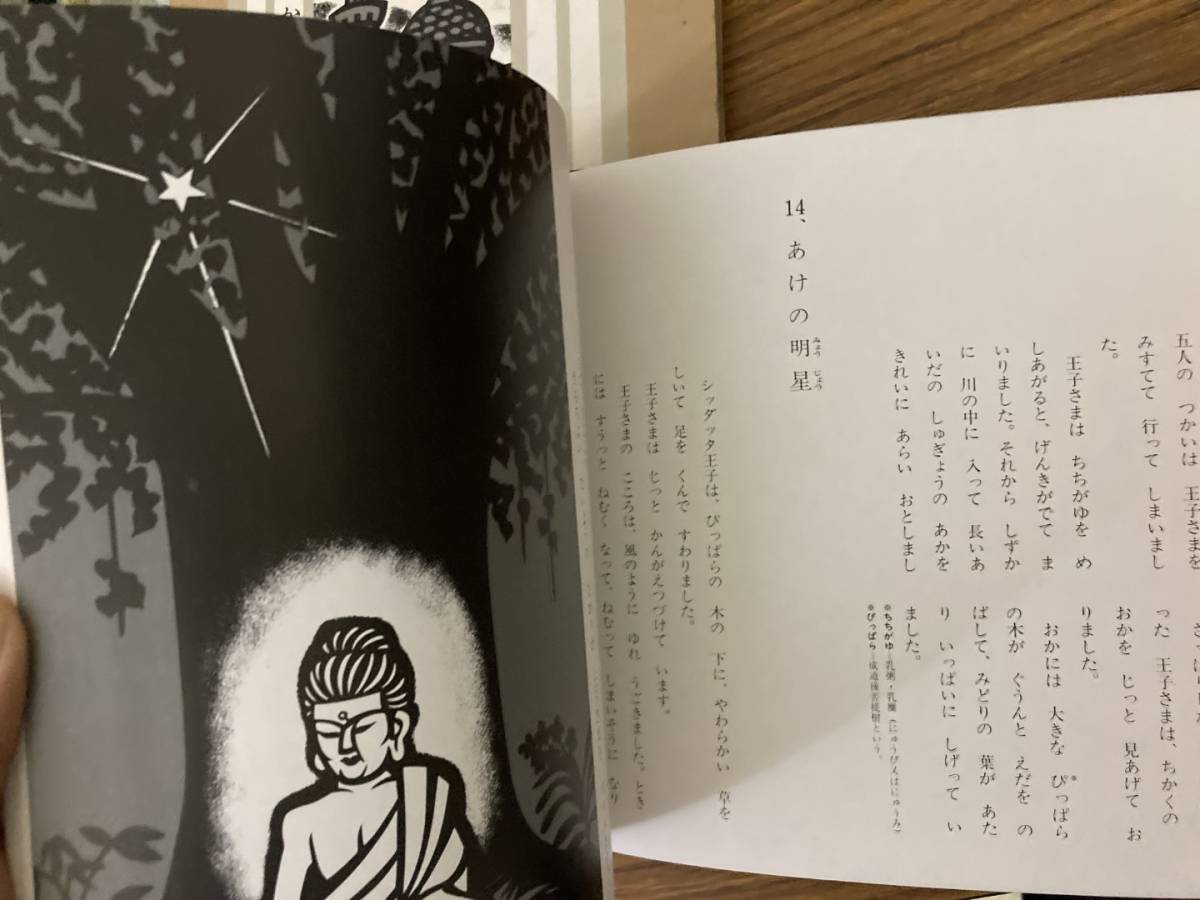 五人の つかいは 王子さまを
みすてて 行って しまいまし
た。
王子さまは ちちがゆを め
しあがると、げんきがでて ま
いりました。それから しずか
に 川の中に 入って 長いあ
いだの しゅぎょうの あかを
きれいに あらい おとしまし
った 王子さまは、ちかくの
おかを じっと 見あげて お
りました。
おかには 大きな ぴっぱら
の木が ぐうんと えだを の
ばして、みどりの 葉が あた
り いっぱいに しげって い
ました。
※ちちがゆ―乳粥・乳糜(にゅうび又はにゅうみ)
※ぴっぱら―成道後菩提樹という。
14、あけの明星
みょうじょう
シッダッタ王子は、ぴっぱらの 木の 下に、やわらかい 草を
しいて 足を くんで すわりました。
王子さまは じっと かんがえつづけて います。
王子さまの こころは、風のように ゆれ うごきました。とき
には すうっと ねむく なって、ねむって しまいそうに なり
か